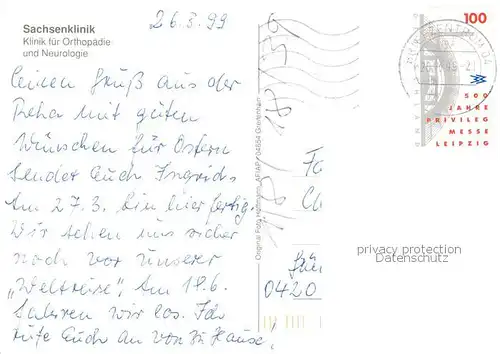 26.3.99
Sachsenklinik
Klinik für Orthopädie
und Neurologie
einen Gruß aus der
Reha mit guten
Wünschen für Ostern
sendet Euch Ingrid
Am 27.3. bin hier fertig.
Wir sehen uns sicher
noch vor unserer
„Weltreise“. Am 19.6.
fahren wir los. Ich
rufe Euch an von zu Hause!
0420
100
500
JAHRE
PRIVILEG
MESSE
LEIPZIG
privacy protection
Datenschutz